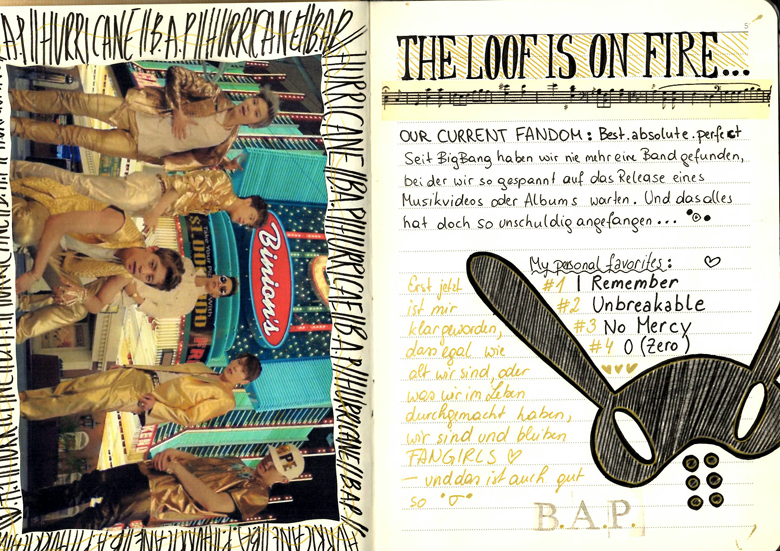 B.A.P//HURRICANE//B.A.P//HURRICANE//B.A.P
Binion's
5
THE LOOF IS ON FIRE...
OUR CURRENT FANDOM: Best.absolute.perfect
Seit BigBang haben wir nie mehr eine Band gefunden,
bei der wir so gespannt auf das Release eines
Musikvideos oder Albums warten. Und das alles
hat doch so unschuldig angefangen...
My personal favorites:
#1 I Remember
#2 Unbreakable
#3 No Mercy
#4 0 (Zero)
Erst jetzt
ist mir
klar geworden,
dass egal wie
alt wir sind, oder
was wir im Leben
durchgemacht haben,
wir sind und bleiben
FANGIRLS ♡
– und das ist auch gut
so
B.A.P.